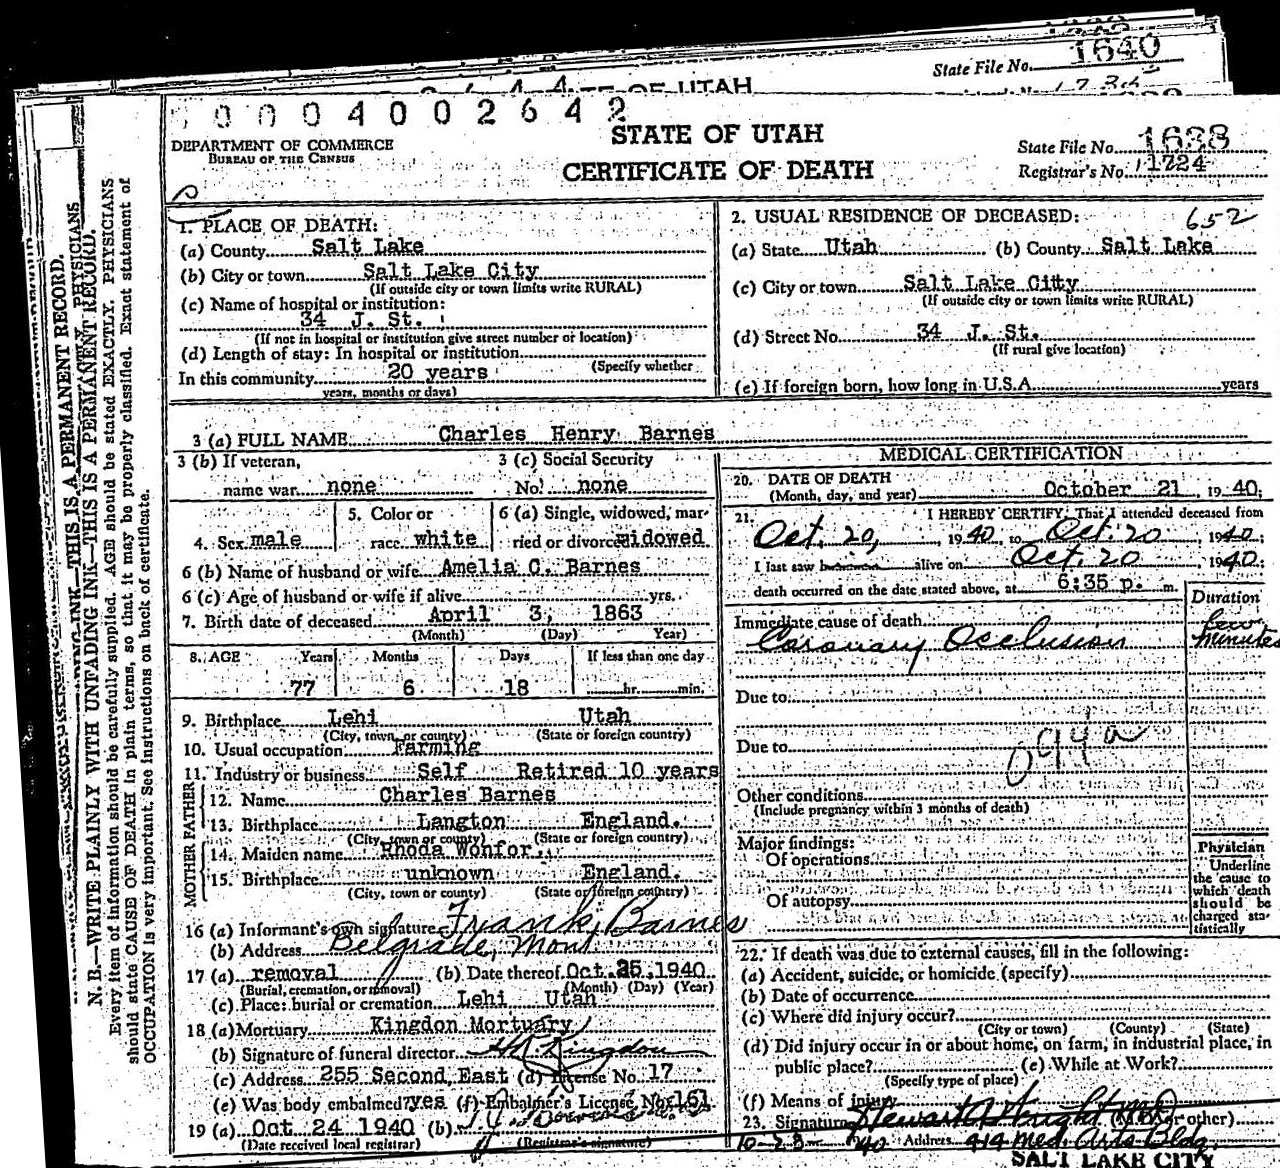 1640
State File No.
OF UTAH
0 0 0 4 0 0 2 6 4 2
DEPARTMENT OF COMMERCE
BUREAU OF THE CENSUS
STATE OF UTAH
CERTIFICATE OF DEATH
State File No. 1638
Registrar's No. 1724
N. B.—WRITE PLAINLY WITH UNFADING INK—THIS IS A PERMANENT RECORD.
Every item of information should be carefully supplied. AGE should be stated EXACTLY. PHYSICIANS
should state CAUSE OF DEATH in plain terms, so that it may be properly classified. Exact statement of
OCCUPATION is very important. See instructions on back of certificate.
1. PLACE OF DEATH:
(a) County Salt Lake
(b) City or town Salt Lake City
(If outside city or town limits write RURAL)
(c) Name of hospital or institution:
34 J. St.
(If not in hospital or institution give street number or location)
(d) Length of stay: In hospital or institution
(Specify whether
In this community 20 years
years, months or days)
2. USUAL RESIDENCE OF DECEASED: 652
(a) State Utah (b) County Salt Lake
(c) City or town Salt Lake Citty
(If outside city or town limits write RURAL)
(d) Street No. 34 J. St.
(If rural give location)
(e) If foreign born, how long in U.S.A. years
3 (a) FULL NAME Charles Henry Barnes
3 (b) If veteran,
name war none
3 (c) Social Security
No. none
4. Sex male
5. Color or
race white
6 (a) Single, widowed, mar-
ried or divorced widowed
6 (b) Name of husband or wife Amelia C. Barnes
6 (c) Age of husband or wife if alive yrs.
7. Birth date of deceased April 3, 1863
(Month) (Day) Year)
8. AGE Years Months Days If less than one day
77 6 18 hr. min.
9. Birthplace Lehi Utah
(City, town, or county) (State or foreign country)
10. Usual occupation Farming
11. Industry or business Self Retired 10 years
MOTHER FATHER
12. Name Charles Barnes
13. Birthplace Langton England.
(City, town or county) (State or foreign country)
14. Maiden name Rhoda Wonfor
15. Birthplace unknown England.
(City, town or county) (State or foreign country)
16 (a) Informant's own signature Frank Barnes
(b) Address Belgrade, Mont
17 (a) removal (b) Date thereof Oct. 25, 1940
(Burial, cremation, or removal) (Month) (Day) (Year)
(c) Place: burial or cremation Lehi Utah
18 (a) Mortuary Kingdon Mortuary
(b) Signature of funeral director Kingdon
(c) Address 255 Second East (d) License No. 17
(e) Was body embalmed? yes (f) Embalmer's License No. 161
19 (a) Oct 24 1940 (b)
(Date received local registrar) (Registrar's signature)
MEDICAL CERTIFICATION
20. DATE OF DEATH
(Month, day, and year) October 21, 1940;
21. I HEREBY CERTIFY, That I attended deceased from
Oct. 20, 1940, to Oct. 20, 1940;
I last saw alive on Oct. 20 1940;
death occurred on the date stated above, at 6:35 p. m.
Duration
Immediate cause of death
Coronary Occlusion few minutes
Due to
094a
Due to
Other conditions
(Include pregnancy within 3 months of death)
Major findings:
Of operations
Of autopsy
Physician
Underline
the cause to
which death
should be
charged sta-
tistically
22. If death was due to external causes, fill in the following:
(a) Accident, suicide, or homicide (specify)
(b) Date of occurrence
(c) Where did injury occur?
(City or town) (County) (State)
(d) Did injury occur in or about home, on farm, in industrial place, in
public place? (e) While at Work?
(Specify type of place)
(f) Means of injury
23. Signature Stewart A Wright MD (M.D. or other)
10-23-40 Address 414 Med. Arts Bldg
SALT LAKE CITY